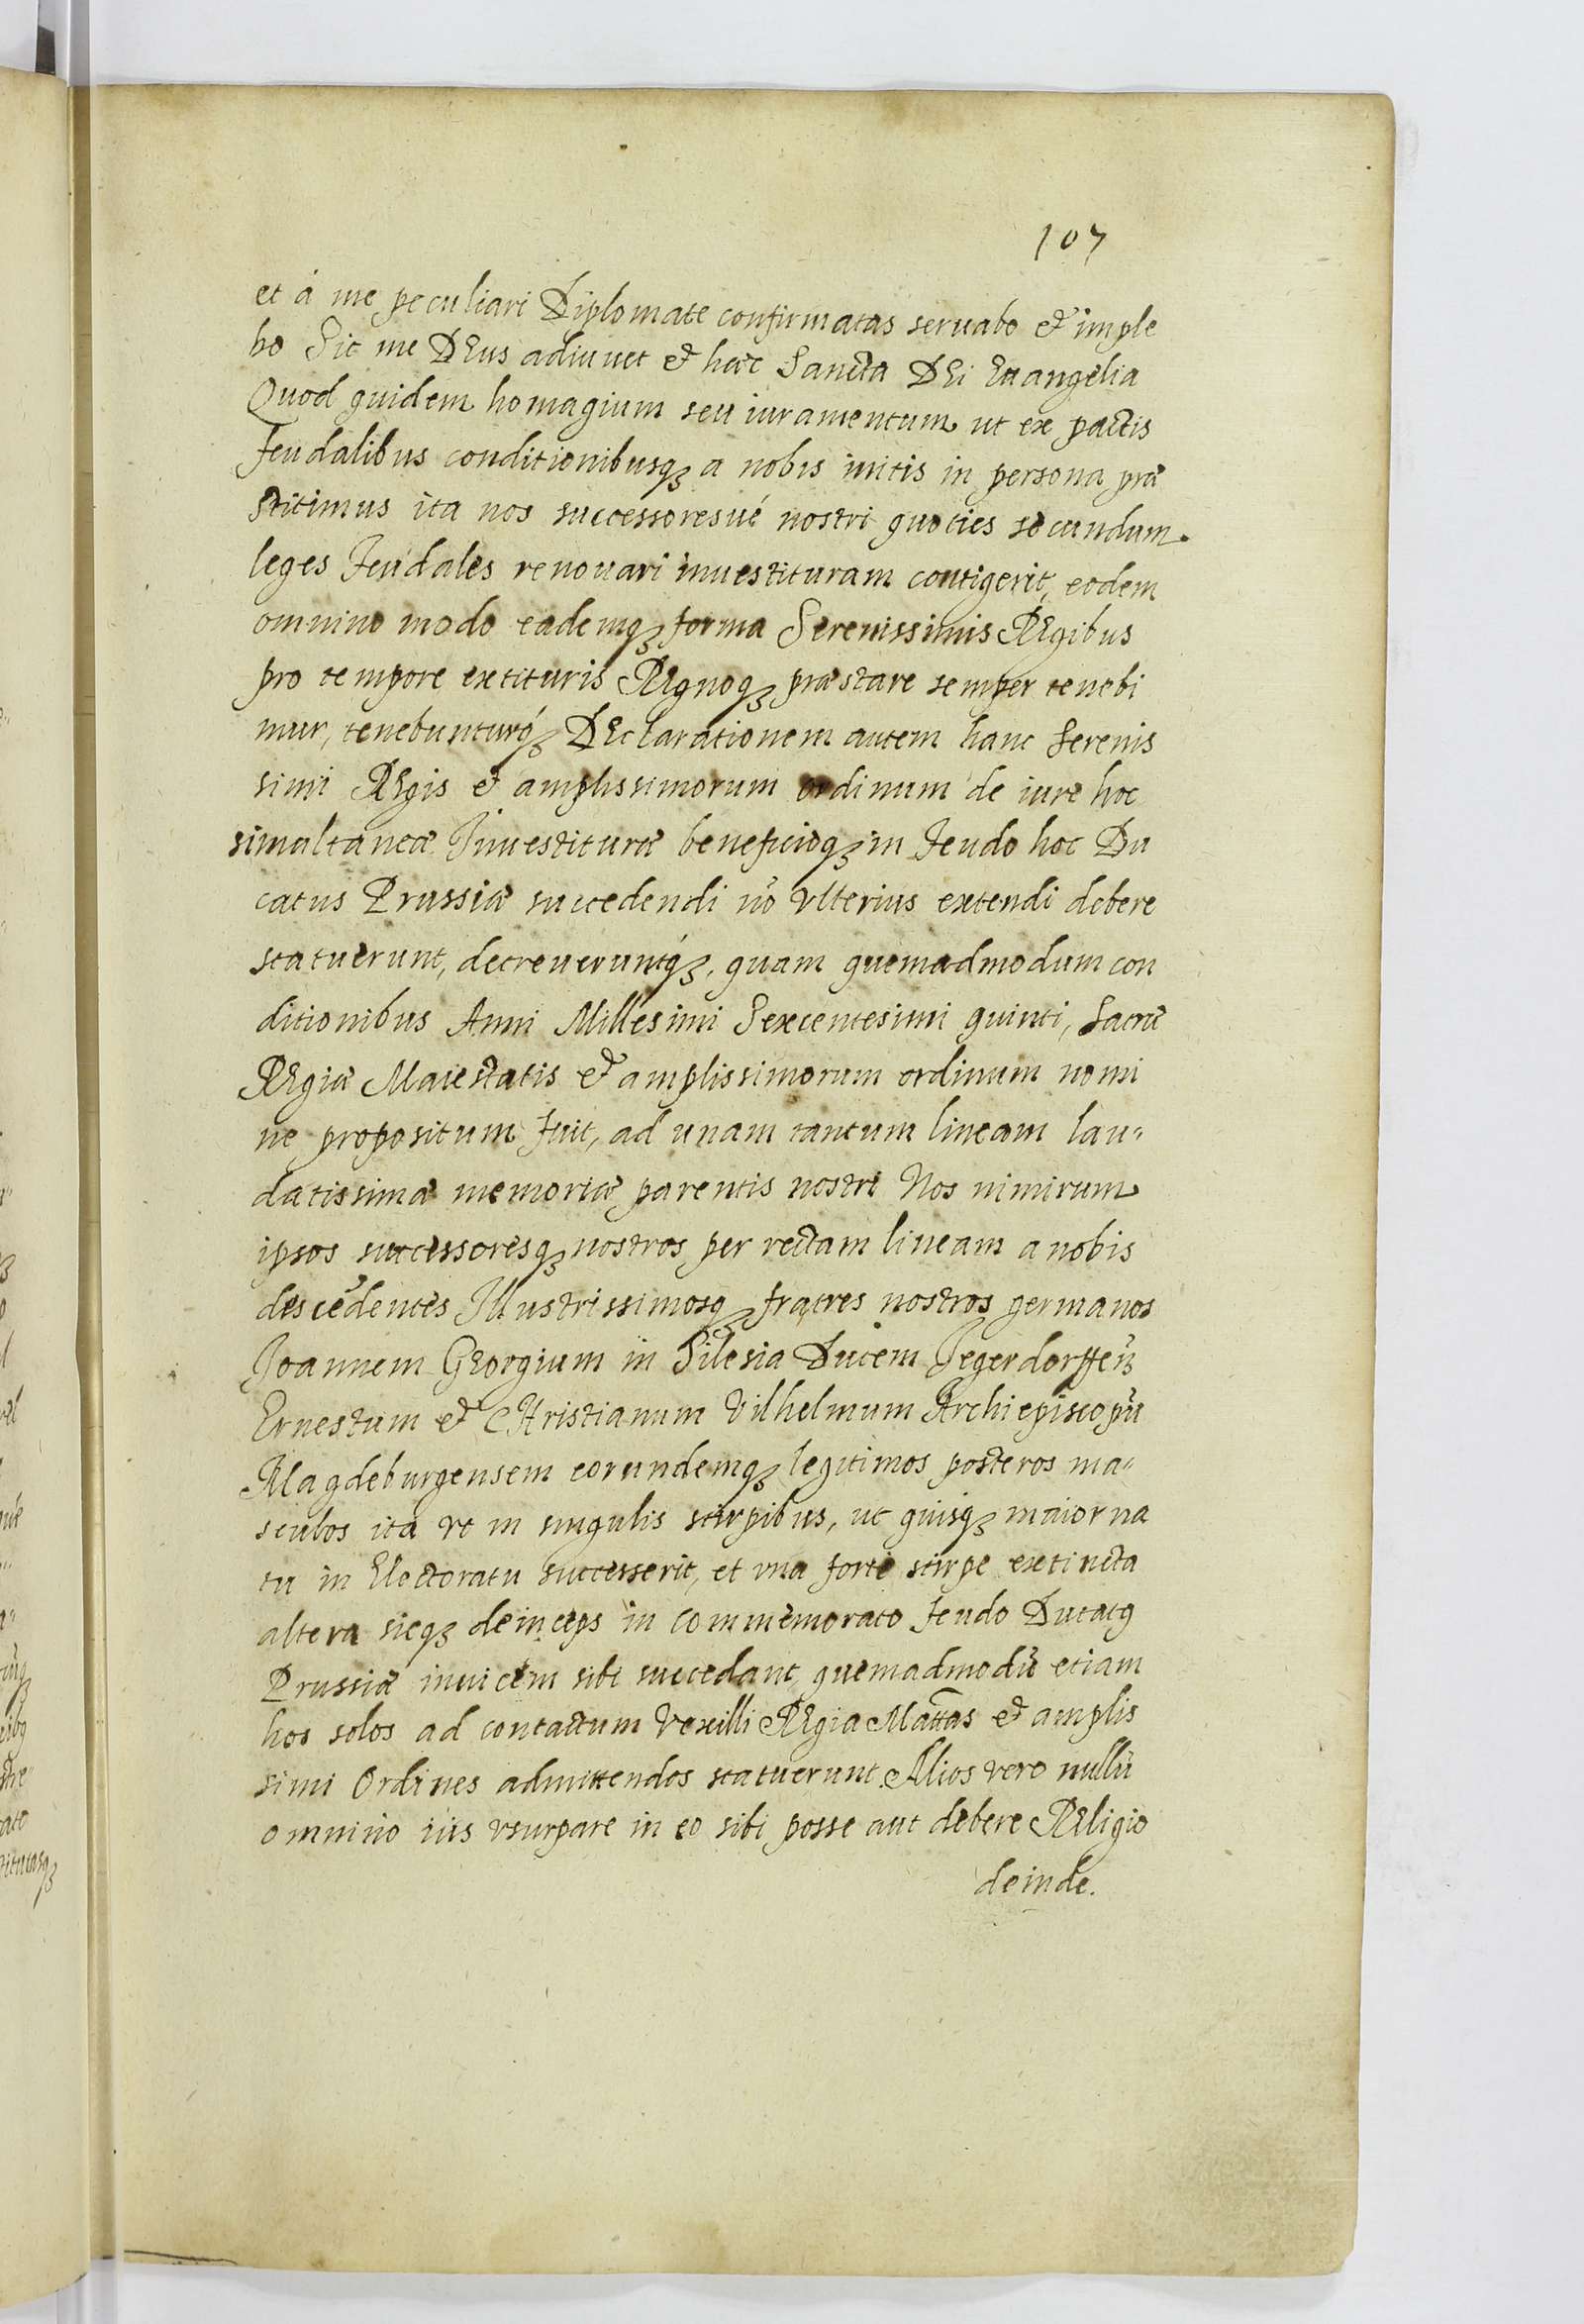 107
et á me peculiari Diplomate confirmatas seruabo et imple
bo Sic me DEus adiuuet et hæc Sancta DEi Euangelia
Quod quidem homagium seu iuramentum ut ex pactis
feudalibus conditionibusq₃ a nobis initis in persona præ
stitimus ita nos successoresué nostri quoties secundum
leges Feudales renouari inuestituram contigerit, eodem
omnino modo eademq₃ forma Serenissimis REgibus
pro tempore extituris REgnoq₃ præstare semper tenebi
mur, tenebunturq́₃ DEclarationem autem hanc Serenis
simi REgis et amplissimorum ordinum de iure hoc
simultaneæ Inuestituræ beneficioq₃ in Feudo hoc Du
catus Prussiæ succedendi nō vlterius extendi debere
statuerunt, decreueruntq́₃, quam quemadmodum con
ditionibus Anni Millesimi Sexcentesimi quinti, Sacræ
REgiæ Maiestatis et amplissimorum ordinum nomi
ne propositum fuit, ad unam tantum lineam lau„
datissimæ memoriæ parentis nostri Nos nimirum
ipsos successoresq₃ nostros per rectam lineam a nobis
descēdentes Illustrissimosq₃ fratres nostros germanos
Joannem GEorgium in Silesia Ducem Jegerdorffeñ
Ernestum et CHristianum Vilhelmum Archiepiscopū
Magdeburgensem eorundemq₃ legitimos posteros ma„
sculos ita vt in singulis stirpibus, ut quisq₃ maior na
tu in Electoratu successerit, et vna forte stirpe extincta
altera sicq₃ deinceps in commemorato feudo Ducatq
Prussiæ inuicem sibi succedant, quemadmodū etiam
hos solos ad contactum Vexilli REgia Mattas et amplis
simi Ordines admittendos statuerunt Alios vero nullū
omnino iús vsurpare in eo sibi posse aut debere REligio
deinde.